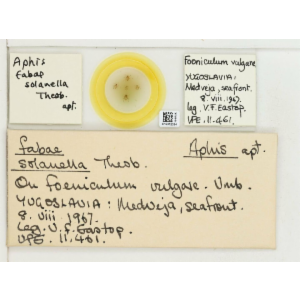 Aphis
fabae
solanella
Theob.
apt.
Foeniculum vulgare
YUGOSLAVIA:
Medveja, seafront.
8. viii. 1967.
leg. V.F. Eastop.
VFE. 11.461.
fabae Aphis apt.
solanella Theob.
On Foeniculum vulgare. Umb.
YUGOSLAVIA: Medveja, seafront.
8. viii. 1967.
Leg. V. F. Eastop.
VFE. 11.461.